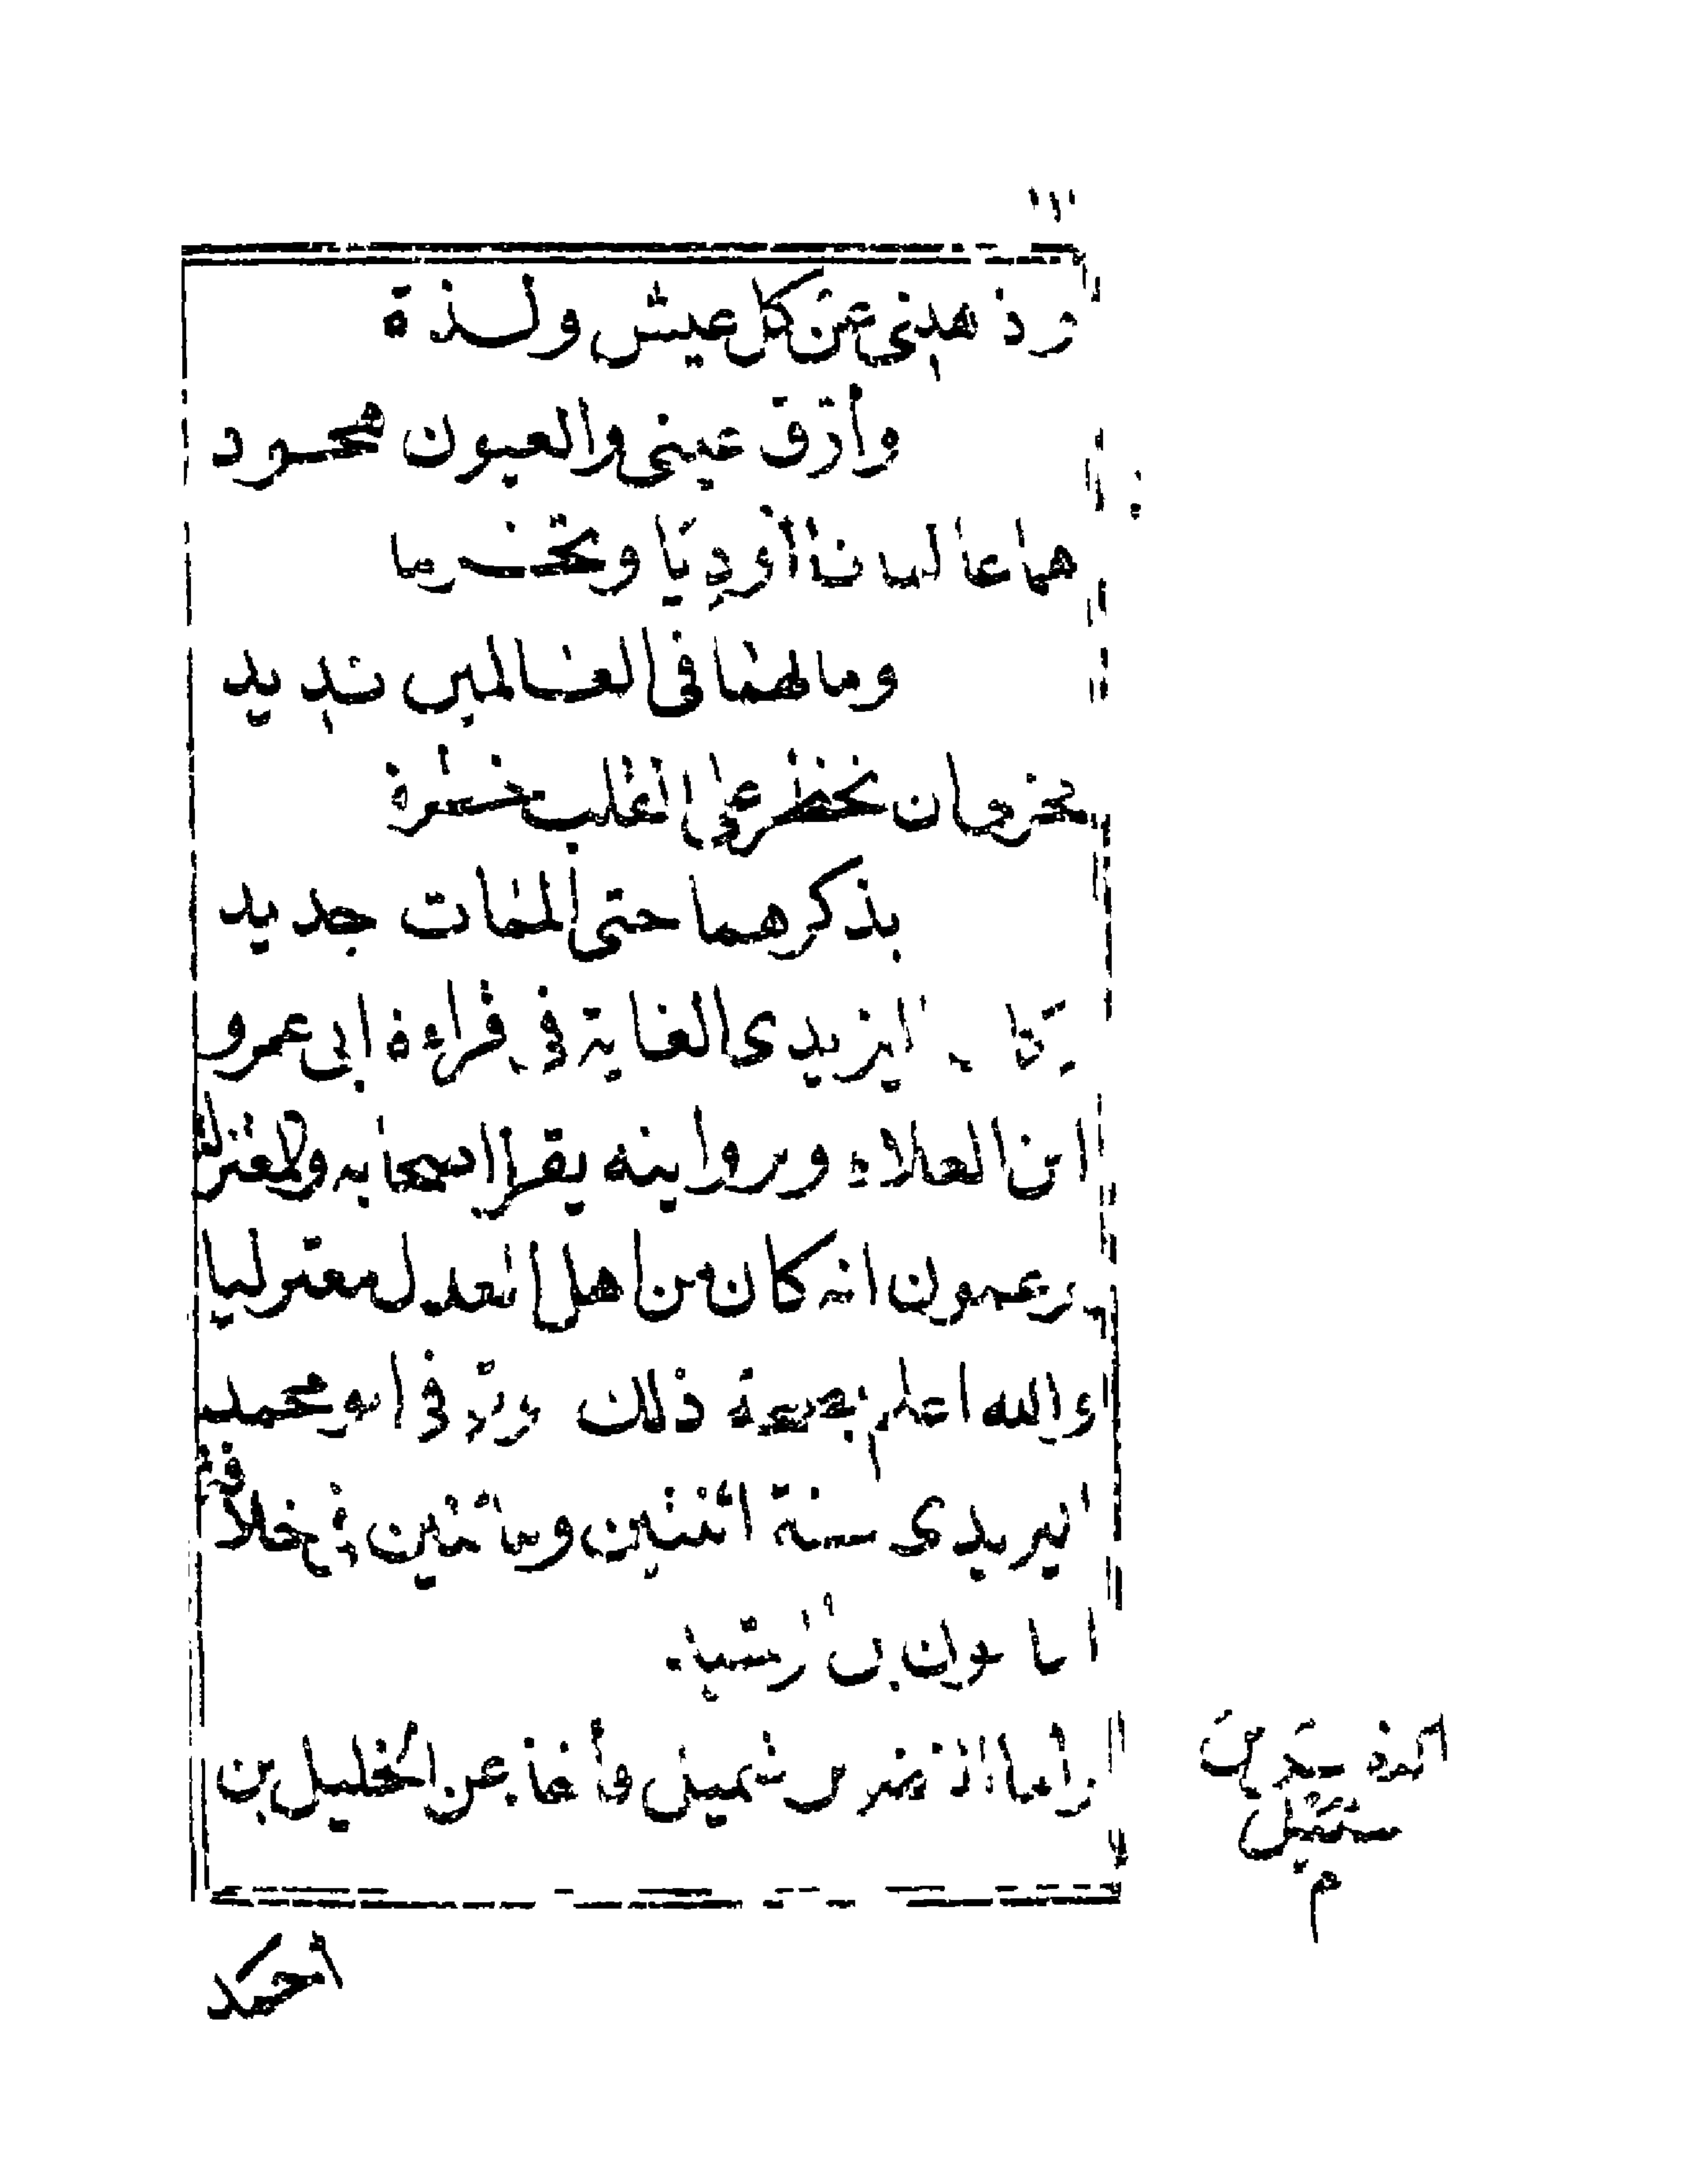 وأذهلني عن كل عيش ولذة
وأرق عيني والعيون هجود
هما عالمانا أوديا وتخرما
وما لهما في العالمين نديد
فحزني ان تخطر على القلب خطرة
بذكرهما حتى الممات جديد
اليزيدى الغاية في قراءة ابى عمرو
ابن العلاء وبروايته يقرا اصحابه والمعتزلة
يزعمون انه كان من اهل العدل معتزليا
والله اعلم بصحة ذلك وتوفي ابو محمد
اليزيدى سنة اثنتين ومائتين في خلافة
المامون بن الرشيد
واما النضر بن شميل فأخذ عن الخليل بن
النضر بن
شميل
م
أحمد